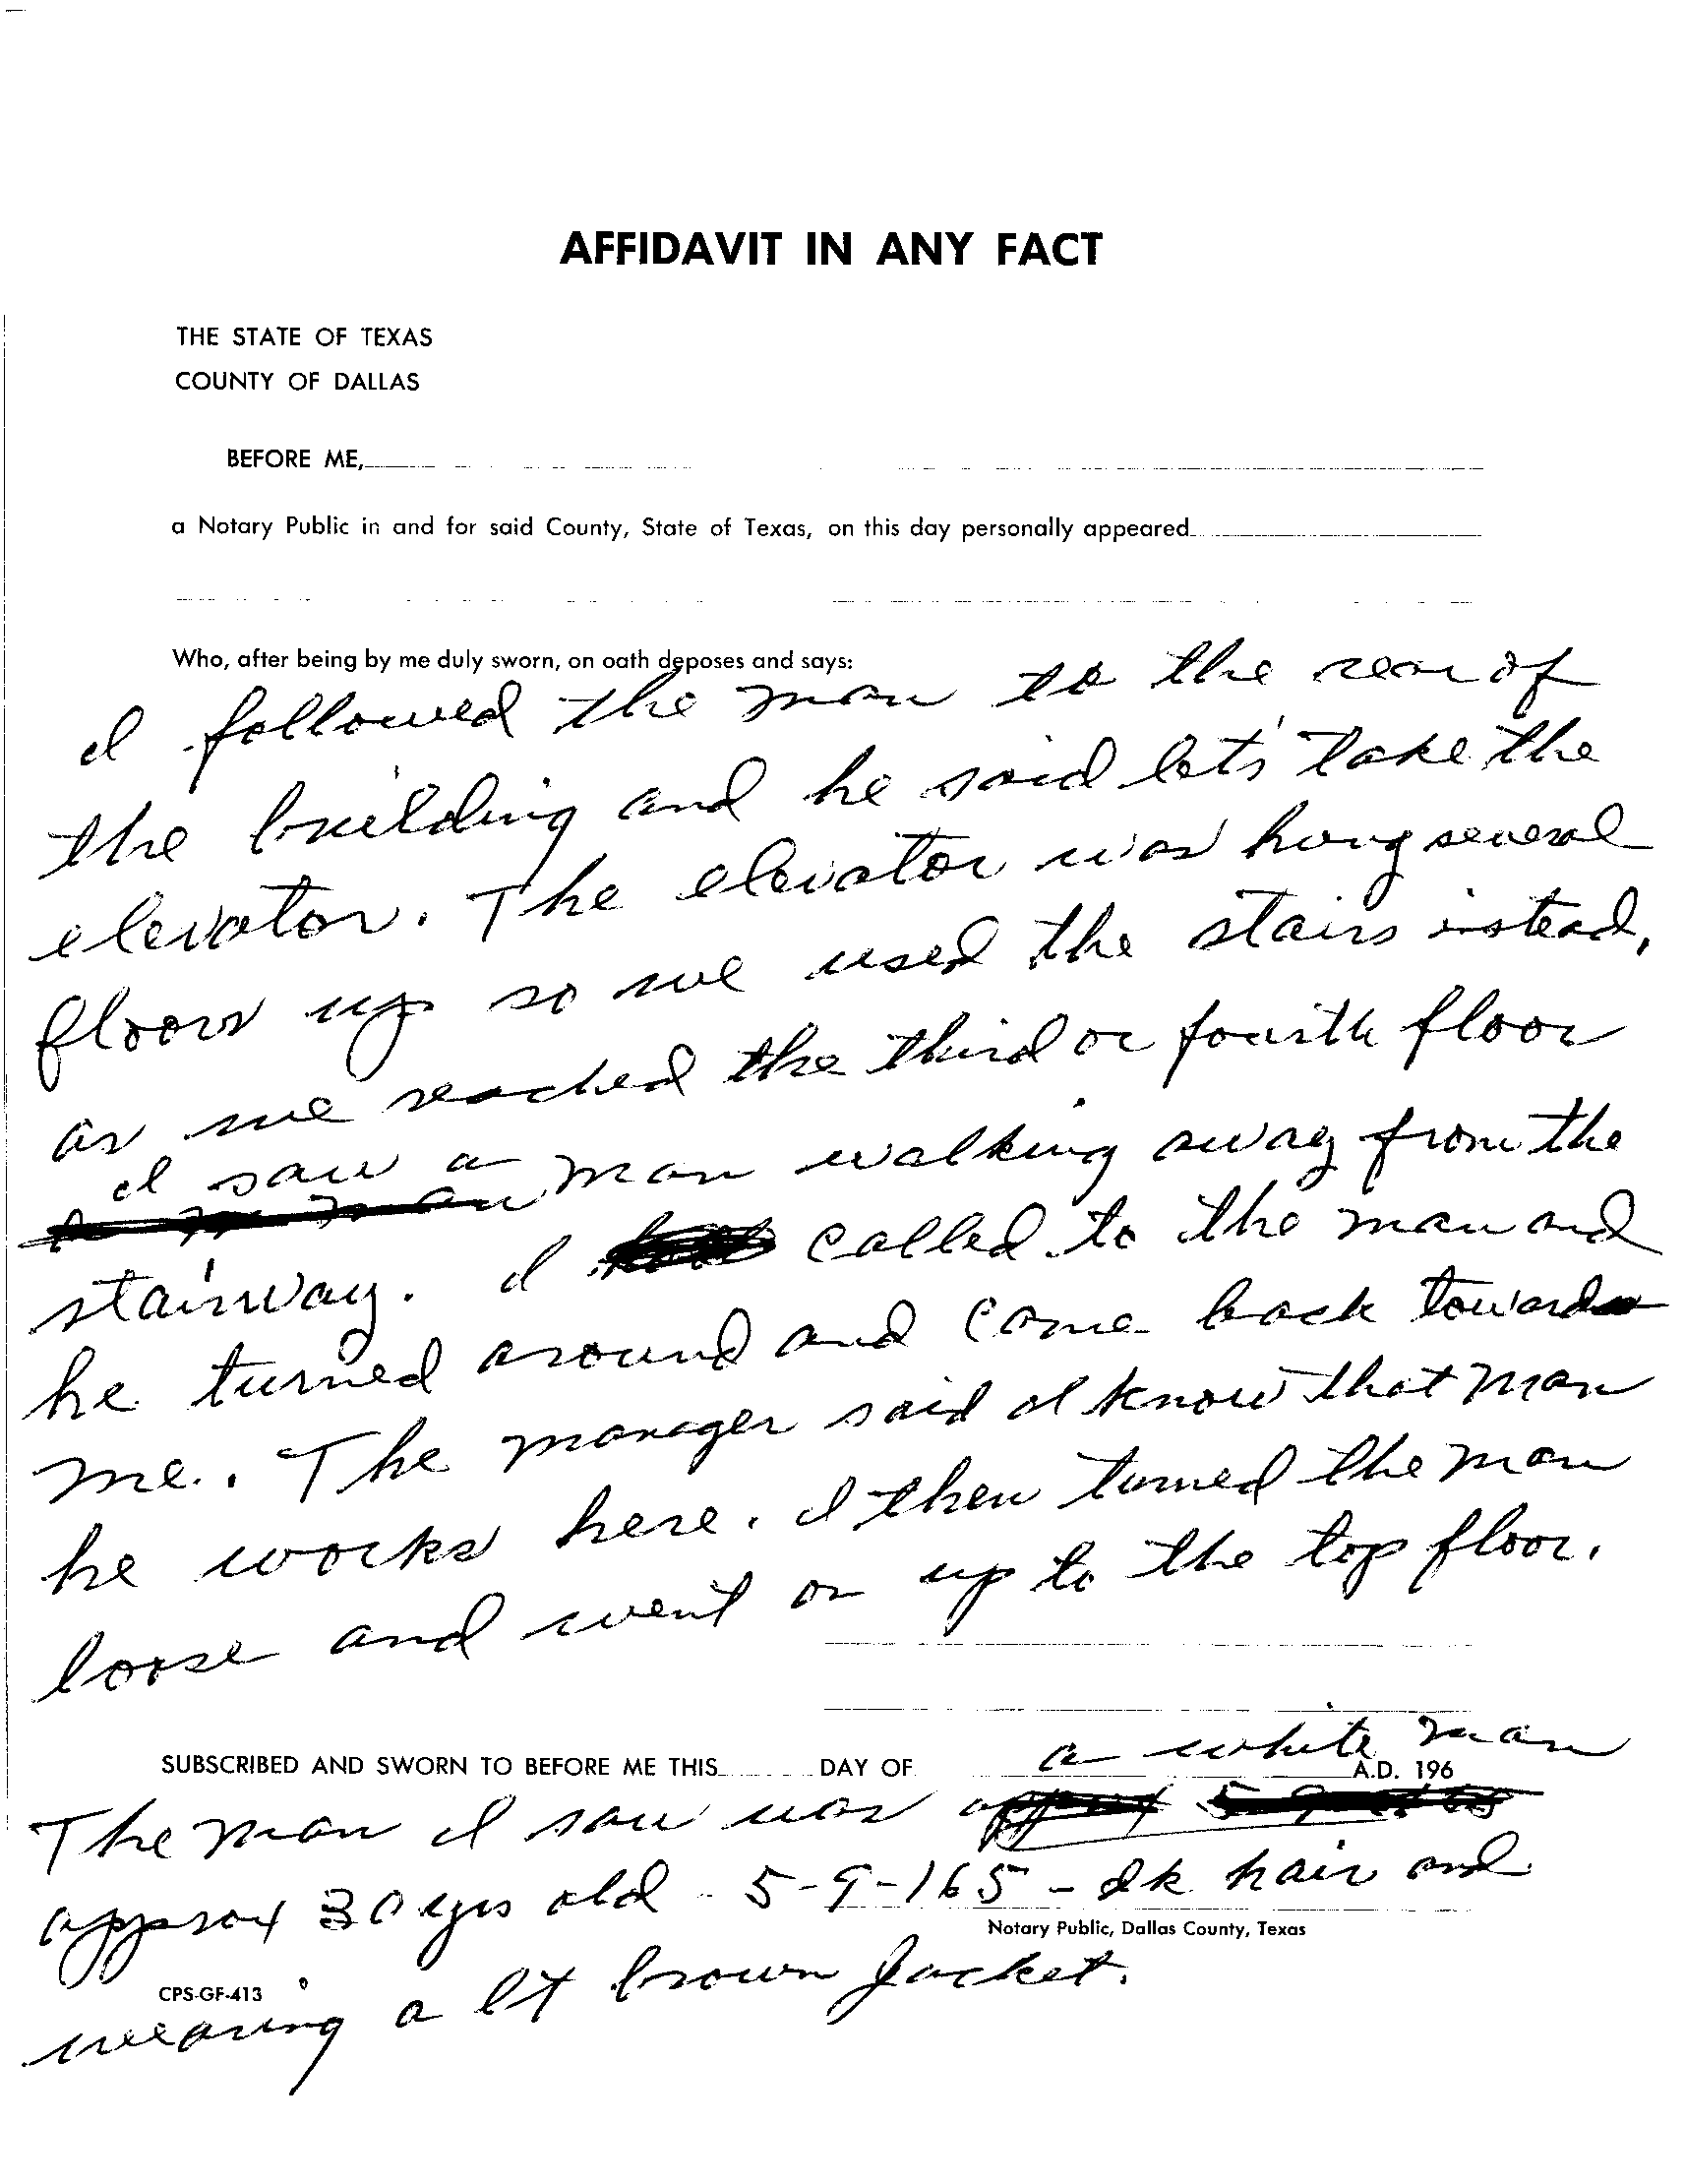 AFFIDAVIT IN ANY FACT
THE STATE OF TEXAS
COUNTY OF DALLAS
BEFORE ME,
a Notary Public in and for said County, State of Texas, on this day personally appeared
Who, after being by me duly sworn, on oath deposes and says:
I followed the man to the rear of
the building and he said let's take the
elevator. The elevator was hung several
floors up so we used the stairs instead,
as we reached the third or fourth floor
I saw a man walking away from the
stairway. I called to the man and
he turned around and came back toward
me. The manager said I know that man
he works here. I then turned the man
loose and went on up to the top floor.
SUBSCRIBED AND SWORN TO BEFORE ME THIS DAY OF A.D. 196
a white man
The man I saw was
approx 30 yrs old - 5-9-165 - dk hair and
Notary Public, Dallas County, Texas
CPS-GF-413
wearing a lt brown jacket.